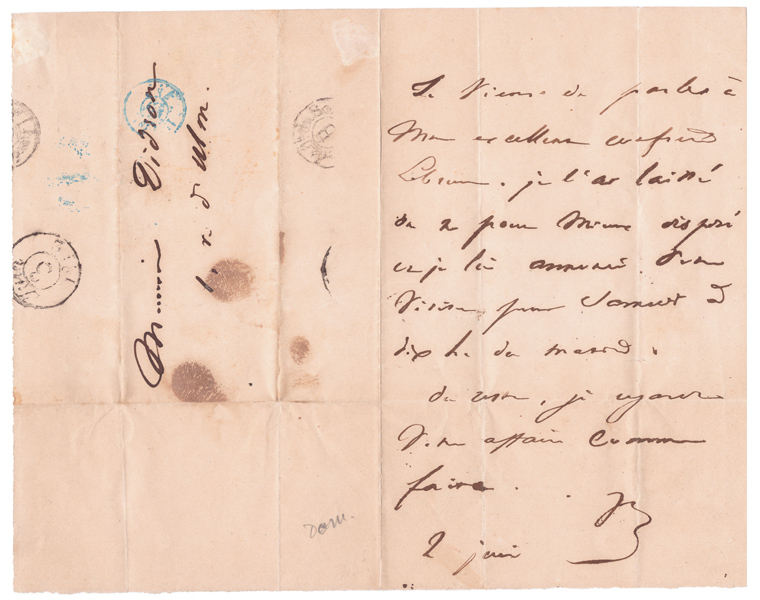 Monsieur Didron
r. d'ulm.
Je viens de parler à
Mon excellent confrère
Lebrun. je l'ai laissé
on ne peut Mieux disposé
et je lui annoncé Votre
Visite pour Samedi
dix h. du matin.
du reste, je regarde
Votre affaire Comme
faite.
2 juin